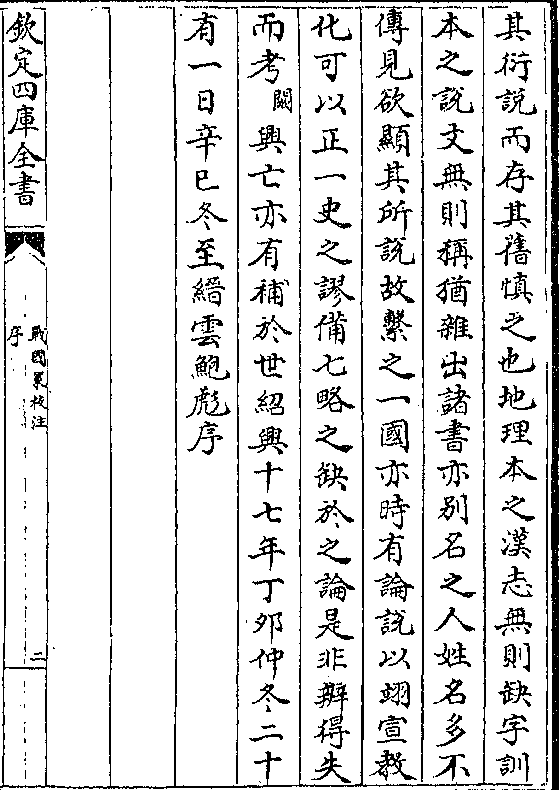 其衍說而存其舊慎之也地理本之漢志無則缺字訓
本之說文無則稱猶雜出諸書亦別名之人姓名多不
傳見欲顯其所說故繫之一國亦時有論說以翊宣教
化可以正一史之謬備七略之缺於之論是非辯得失
而考闕興亡亦有補於世紹興十七年丁夘仲冬二十
有一日辛巳冬至縉雲鮑彪序
欽定四庫全書
戰國策校注
序
二